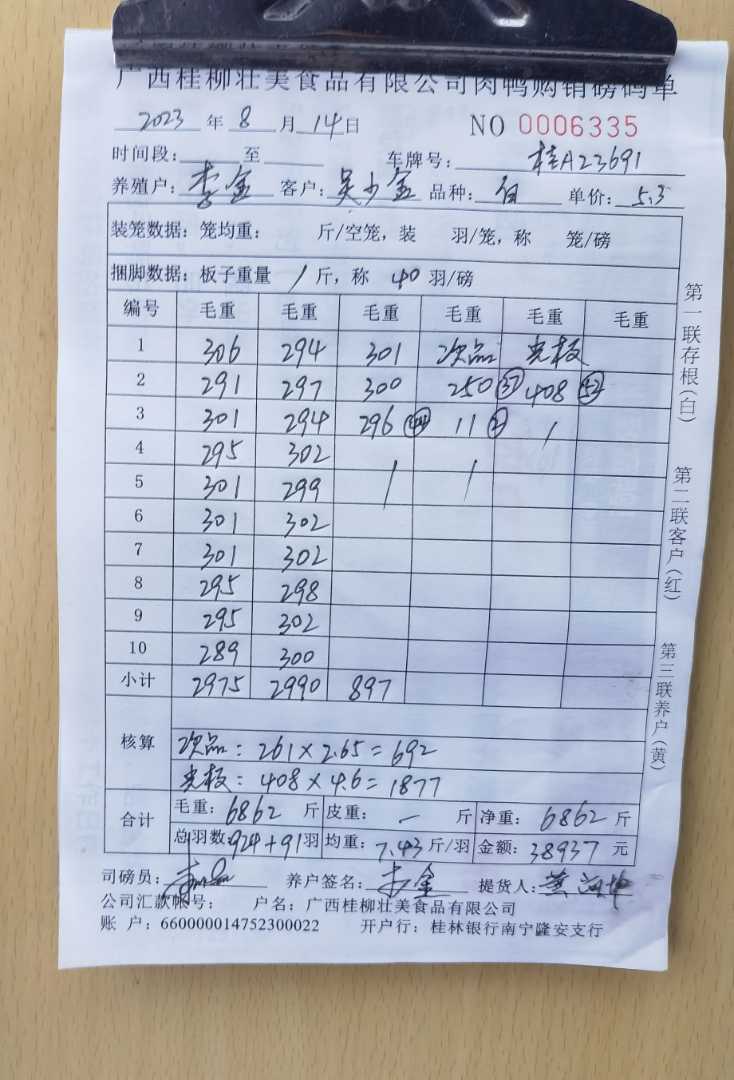 广西桂柳壮美食品有限公司肉鸭购销磅码单
2023 年 8 月 14日 NO 0006335
时间段: 至 车牌号: 桂A23691
养殖户: 李金 客户: 吴少金 品种: 白 单价: 5.3
装笼数据: 笼均重: 斤/空笼, 装 羽/笼, 称 笼/磅
捆脚数据: 板子重量 1 斤, 称 40 羽/磅
编号 毛重 毛重 毛重 毛重 毛重 毛重
1 306 294 301 次品 光板
2 291 297 300 250 37 408 52
3 301 294 296 44 11 2
4 295 302
5 301 299
6 301 302
7 301 302
8 295 298
9 295 302
10 289 300
小计 2975 2990 897
核算
次品: 261×2.65=692
光板: 408×4.6=1877
合计
毛重: 6862 斤 皮重: — 斤 净重: 6862 斤
总羽数: 924+91羽 均重: 7.43 斤/羽 金额: 38937 元
司磅员: 养户签名: 李金 提货人:
公司汇款帐号: 户名: 广西桂柳壮美食品有限公司
账 户: 660000014752300022 开户行: 桂林银行南宁隆安支行
第一联存根(白)
第二联客户(红)
第三联养户(黄)